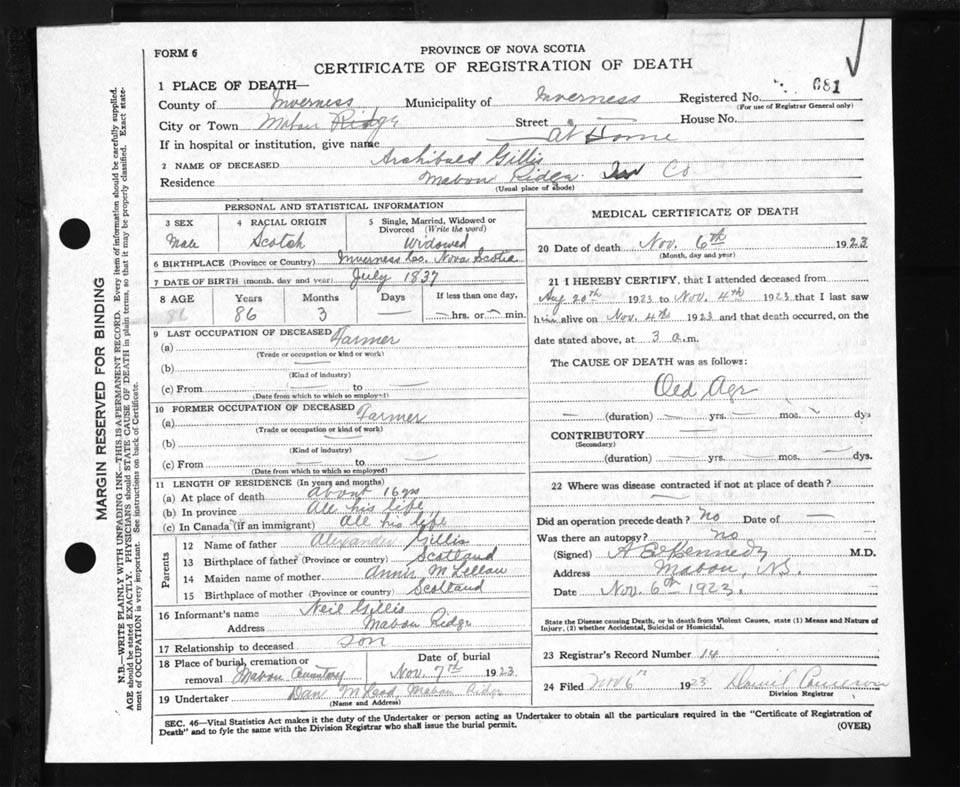 FORM 6
PROVINCE OF NOVA SCOTIA
CERTIFICATE OF REGISTRATION OF DEATH
1 PLACE OF DEATH—
681
County of Inverness Municipality of Inverness Registered No.
(For use of Registrar General only)
City or Town Mabou Ridge Street House No.
If in hospital or institution, give name At Home
2 NAME OF DECEASED Archibald Gillis
Residence Mabou Ridge Inv Co
(Usual place of abode)
PERSONAL AND STATISTICAL INFORMATION
3 SEX 4 RACIAL ORIGIN 5 Single, Married, Widowed or Divorced (Write the word)
Male Scotch Widowed
6 BIRTHPLACE (Province or Country) Inverness Co. Nova Scotia
7 DATE OF BIRTH (month, day and year) July 1837
8 AGE Years Months Days If less than one day,
86 86 3 — — hrs. or — min.
9 LAST OCCUPATION OF DECEASED
(a) Farmer
(Trade or occupation or kind or work)
(b) —
(Kind of industry)
(c) From — to —
(Date from which to which so employed)
10 FORMER OCCUPATION OF DECEASED
(a) Farmer
(Trade or occupation or kind of work)
(b)
(Kind of industry)
(c) From — to —
(Date from which to which so employed)
11 LENGTH OF RESIDENCE (In years and months)
(a) At place of death about 16 yrs
(b) In province All his life
(c) In Canada (if an immigrant) All his life
Parents
12 Name of father Alexander Gillis
13 Birthplace of father (Province or country) Scotland
14 Maiden name of mother Annie McLellan
15 Birthplace of mother (Province or country) Scotland
16 Informant's name Neil Gillis
Address Mabou Ridge
17 Relationship to deceased Son
18 Place of burial, cremation or removal Mabou Cemetery
Date of burial Nov. 7th 1923
19 Undertaker Dan McLeod, Mabou Ridge
(Name and Address)
MEDICAL CERTIFICATE OF DEATH
20 Date of death Nov. 6th 1923
(Month, day and year)
21 I HEREBY CERTIFY, that I attended deceased from
Aug 20th 1923 to Nov. 4th 1923 that I last saw
him alive on Nov. 4th 1923 and that death occurred, on the
date stated above, at 3 a.m.
The CAUSE OF DEATH was as follows:
Old Age
— (duration) — yrs. — mos. — dys
CONTRIBUTORY —
(Secondary)
(duration) — yrs. — mos. — dys.
22 Where was disease contracted if not at place of death?
—
Did an operation precede death? No Date of —
Was there an autopsy? No
(Signed) Kennedy M.D.
Address Mabou, N.S.
Date Nov. 6th 1923.
State the Disease causing Death, or in death from Violent Causes, state (1) Means and Nature of
Injury, (2) whether Accidental, Suicidal or Homicidal.
23 Registrar's Record Number 14
24 Filed Nov 6th 1923 Daniel Cameron
Division Registrar
SEC. 46—Vital Statistics Act makes it the duty of the Undertaker or person acting as Undertaker to obtain all the particulars required in the "Certificate of Registration of
Death" and to fyle the same with the Division Registrar who shall issue the burial permit.
(OVER)
MARGIN RESERVED FOR BINDING
N.B.—WRITE PLAINLY WITH UNFADING INK—THIS IS A PERMANENT RECORD. Every item of information should be carefully supplied.
AGE should be stated EXACTLY. PHYSICIANS should STATE CAUSE OF DEATH in plain terms, so that it may be properly classified. Exact state-
ment of OCCUPATION is very important. See instructions on back of Certificate.